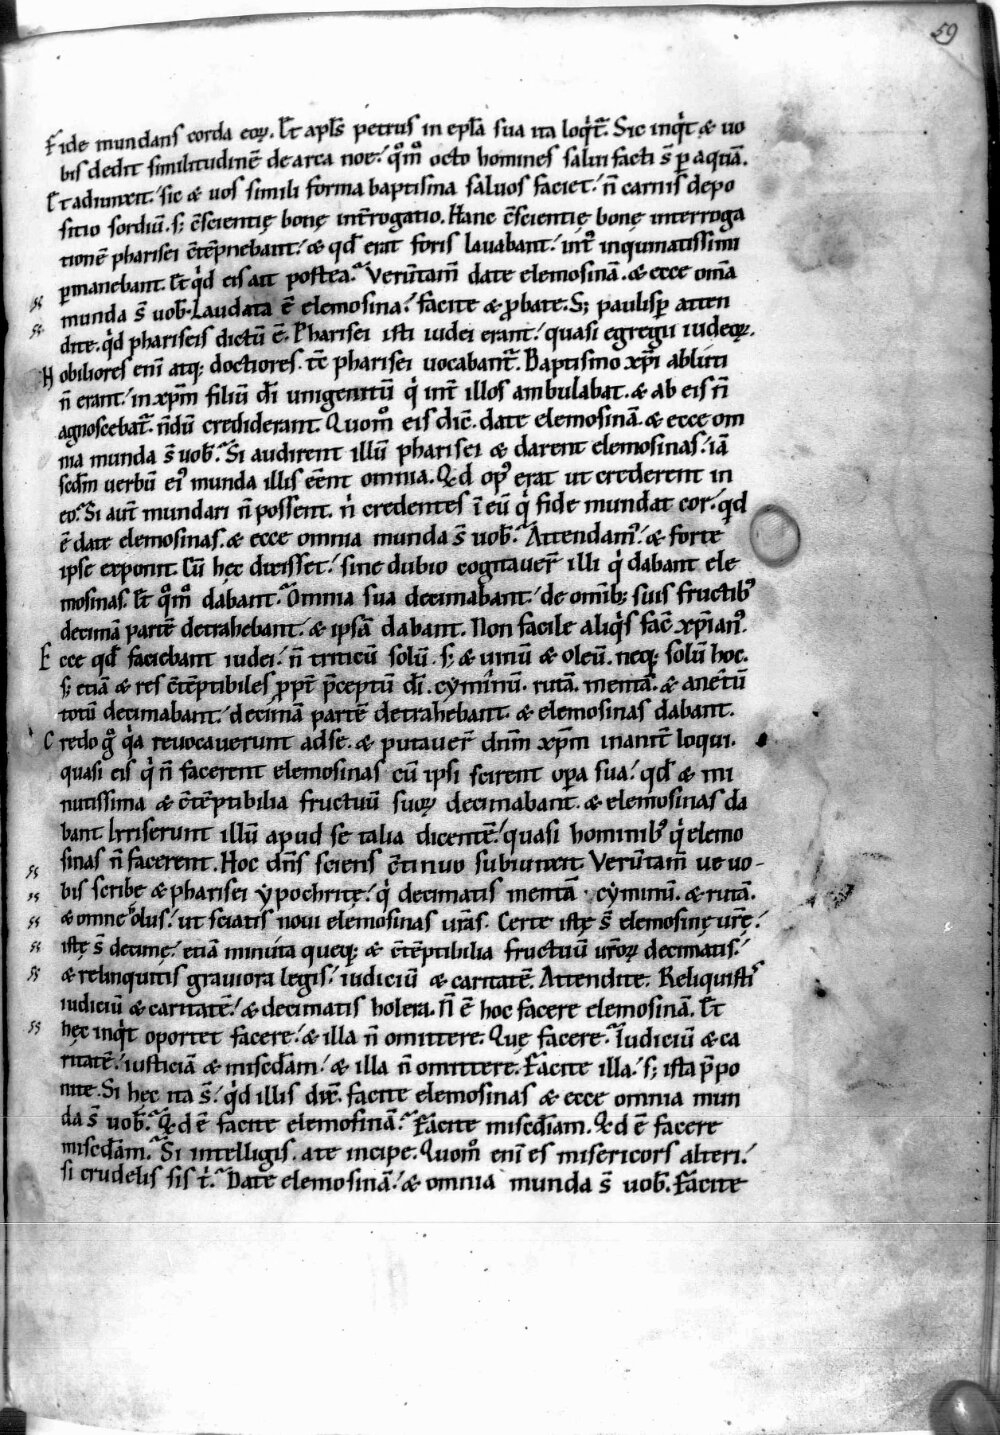 59
Fide mundans corda eoꝝ. Et apl̄s petrus in epl̄a sua ita loqͥt᷑. Sic inqͥt & uo
bis dedit similitudinē de arca noe. qͦm̄ octo homines salui facti s̄ ꝑ aquā.
Et adiunxit. sic & uos simili forma baptisma saluos faciet. n̄ carnis depo
sitio sordiū. s; c̄scientię bonę int̄rogatio. Hanc c̄scientię bonę interroga
tionē pharisei c̄tēpnebant. & qd̄ erat foris lauabant. int᷒ inquinatissimi
ꝑmanebant. Et qͥd eis ait postea? Verūtam̄ date elemosinā. & ecce om̄a
munda s̄ uob̄. Laudata ē elemosina. facite & ꝓbate. S; paulisꝑ atten
dite. qͥd phariseis dictū ē. Pharisei isti iudei erant. quasi egregii iudeoꝝ.
Nobiliores eni atq; doctiores. tc̄ pharisei uocabant᷑. Baptismo xp̄i abluti
n̄ erant. in xp̄m filiū dī unigenitū qͥ int̄ illos ambulabat. & ab eis n̄
agnoscebat᷑. n̄dū crediderant. Quom̊ eis dic̄. date elemosinā. & ecce om
nia munda s̄ uob̄? Si audirent illū pharisei & darent elemosinas. iā
sedm̄ uerbū ei᷒ munda illis eēnt omnia. Qd op᷒ erat ut crederent in
eo? Si aut̄ mundari n̄ possent. nͥ credentes ī eū qͥ fide mundat cor. qd
ē date elemosinas. & ecce omnia munda s̄ uob̄? Attendam᷒. & forte
ipse exponit. Cū hec dixisset. sine dubio cogitauer̄ illi qͥ dabant ele
mosinas. Et qͦm̊ dabant? Omnia sua decimabant. de omīb; suis fructib᷒
decimā partē detrahebant. & ipsā dabant. Non facile aliqͥs fac̄ xp̄ian᷒.
Ecce qd̄ faciebant iudei. n̄ triticū solū. s; & uinū & oleū. neq; solū hoc.
s; etiā & res c̄tēptibiles ꝓpt̄ p̄ceptū dī. cyminū. rutā. mentā. & anetū
totū decimabant. decimā partē detrahebant. & elemosinas dabant.
Credo gͦ qͥa reuocauerunt ad se. & putauer̄ dn̄m xp̄m inanit̄ loqui.
quasi eis qͥ n̄ facerent elemosinas cū ipsi scirent oꝑa sua. qd̄ & mi
nutissima & c̄tēptibilia fructuū suoꝝ decimabant. & elemosinas da
bant. Irriserunt illū apud se talia dicentē. quasi hominib᷒ qͥ elemo
sinas n̄ facerent. Hoc dn̄s sciens c̄tinuo subiunxit. Verūtam̄ ue uo-
bis scribę & pharisei ypochritę. qͥ decimatis mentā. cyminū. & rutā.
& omne olus. ut sciatis noui elemosinas ur̄as. Certe istę s̄ elemosinę ur̄ę.
istę s̄ decimę. etiā minuta queq; & c̄tēptibilia fructuū ur̄oꝝ decimatis.
& relinquitis grauiora legis. iudiciū & caritatē. Attendite. Reliquistis
iudiciū & caritatē. & decimatis holera. N̄ ē hoc facere elemosinā. Et
hęc inqͥt oportet facere. & illa n̄ omittere. Quę facere? Iudiciū & ca
ritatē. iusticiā & misc̄dam. & illa n̄ omittere. Facite illa. s; ista p̄po
nite. Si hęc ita s̄. qͥd illis dix̄. facite elemosinas & ecce omnia mun
da s̄ uob̄? Qd ē facite elemosinā? Facite misediam. Qd ē facere
misedam? Si intelligis. a te incipe. Quom̊ eni es misericors alteri.
si crudelis sis tͥ? Date elemosinā. & omnia munda s̄ uob̄. Facite